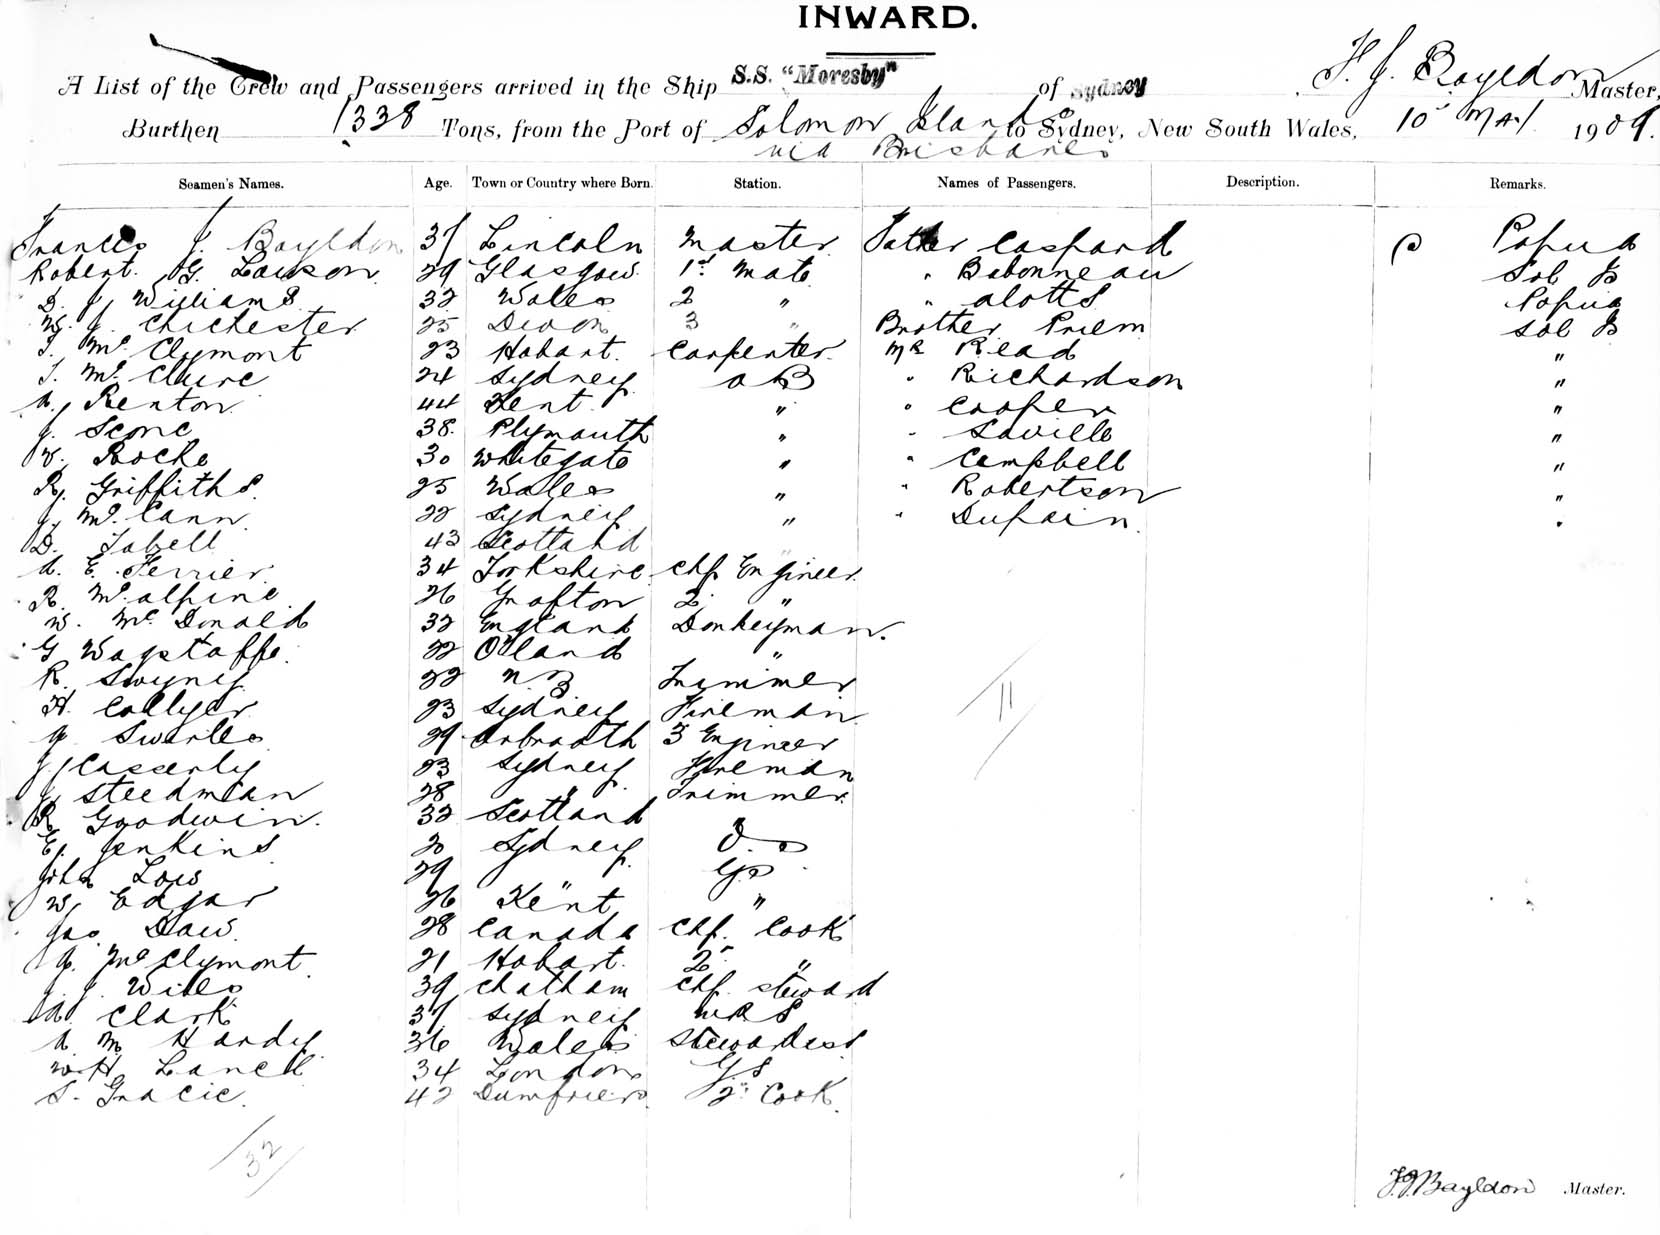 INWARD.
A List of the Crew and Passengers arrived in the Ship S.S. "Moresby" of Sydney F. J. Bayldon Master,
Burthen 1338 Tons, from the Port of Solomon Islands to Sydney, New South Wales, 10 May 1909.
via Brisbane
Seamen's Names. Age. Town or Country where Born. Station. Names of Passengers. Description. Remarks.
Frances J. Bayldon 37 Lincoln Master Father Caspard P Papua
Robert G. Lawson 29 Glasgow 1st Mate " Babonneau Sol Is
D. J. Williams 32 Wales 2 " " Alotts Papua
W. J. Chichester 25 Devon 3 " Brother Priem Sol Is
T. McClymont 23 Hobart. Carpenter Mr Read "
T. McClure 24 Sydney AB " Richardson "
A. Renton 44 Kent " " Cooper "
J. Scone 38 Plymouth " " Saville "
W. Roche 30 Whitegate " " Campbell "
R. Griffiths 25 Wales " " Robertson "
J. McCann 22 Sydney " " Dupain "
D. Isbell 43 Scotland
A. E. Ferrier 34 Yorkshire Chf Engineer
R. McAlpine 26 Grafton 2 "
W. McDonald 32 England Donkeyman.
G Wagstaffe 22 Q'land "
R. Swyny 22 N.Z Trimmer
H. Collyer 23 Sydney Fireman
11
Swirles 29 Arbroath 3 Engineer
J. Casserly 23 Sydney Fireman
J. Steedman 28 " Trimmer
R. Goodwin 32 Scotland "
E. Jenkins 20 Sydney
John Low 29 " GS
W. Edgar 26 Kent "
Jas Daw 28 Canada Chf. Cook
A. McClymont 21 Hobart 2 "
J. J. Wiles 39 Chatham Chf. Steward
A. Clark 37 Sydney WRS
A M Hardy 36 Wales Stewardess
W. H. Lancll 34 London GS
S. Gracie 42 Dumfries 2 Cook
32
F.J. Bayldon Master.